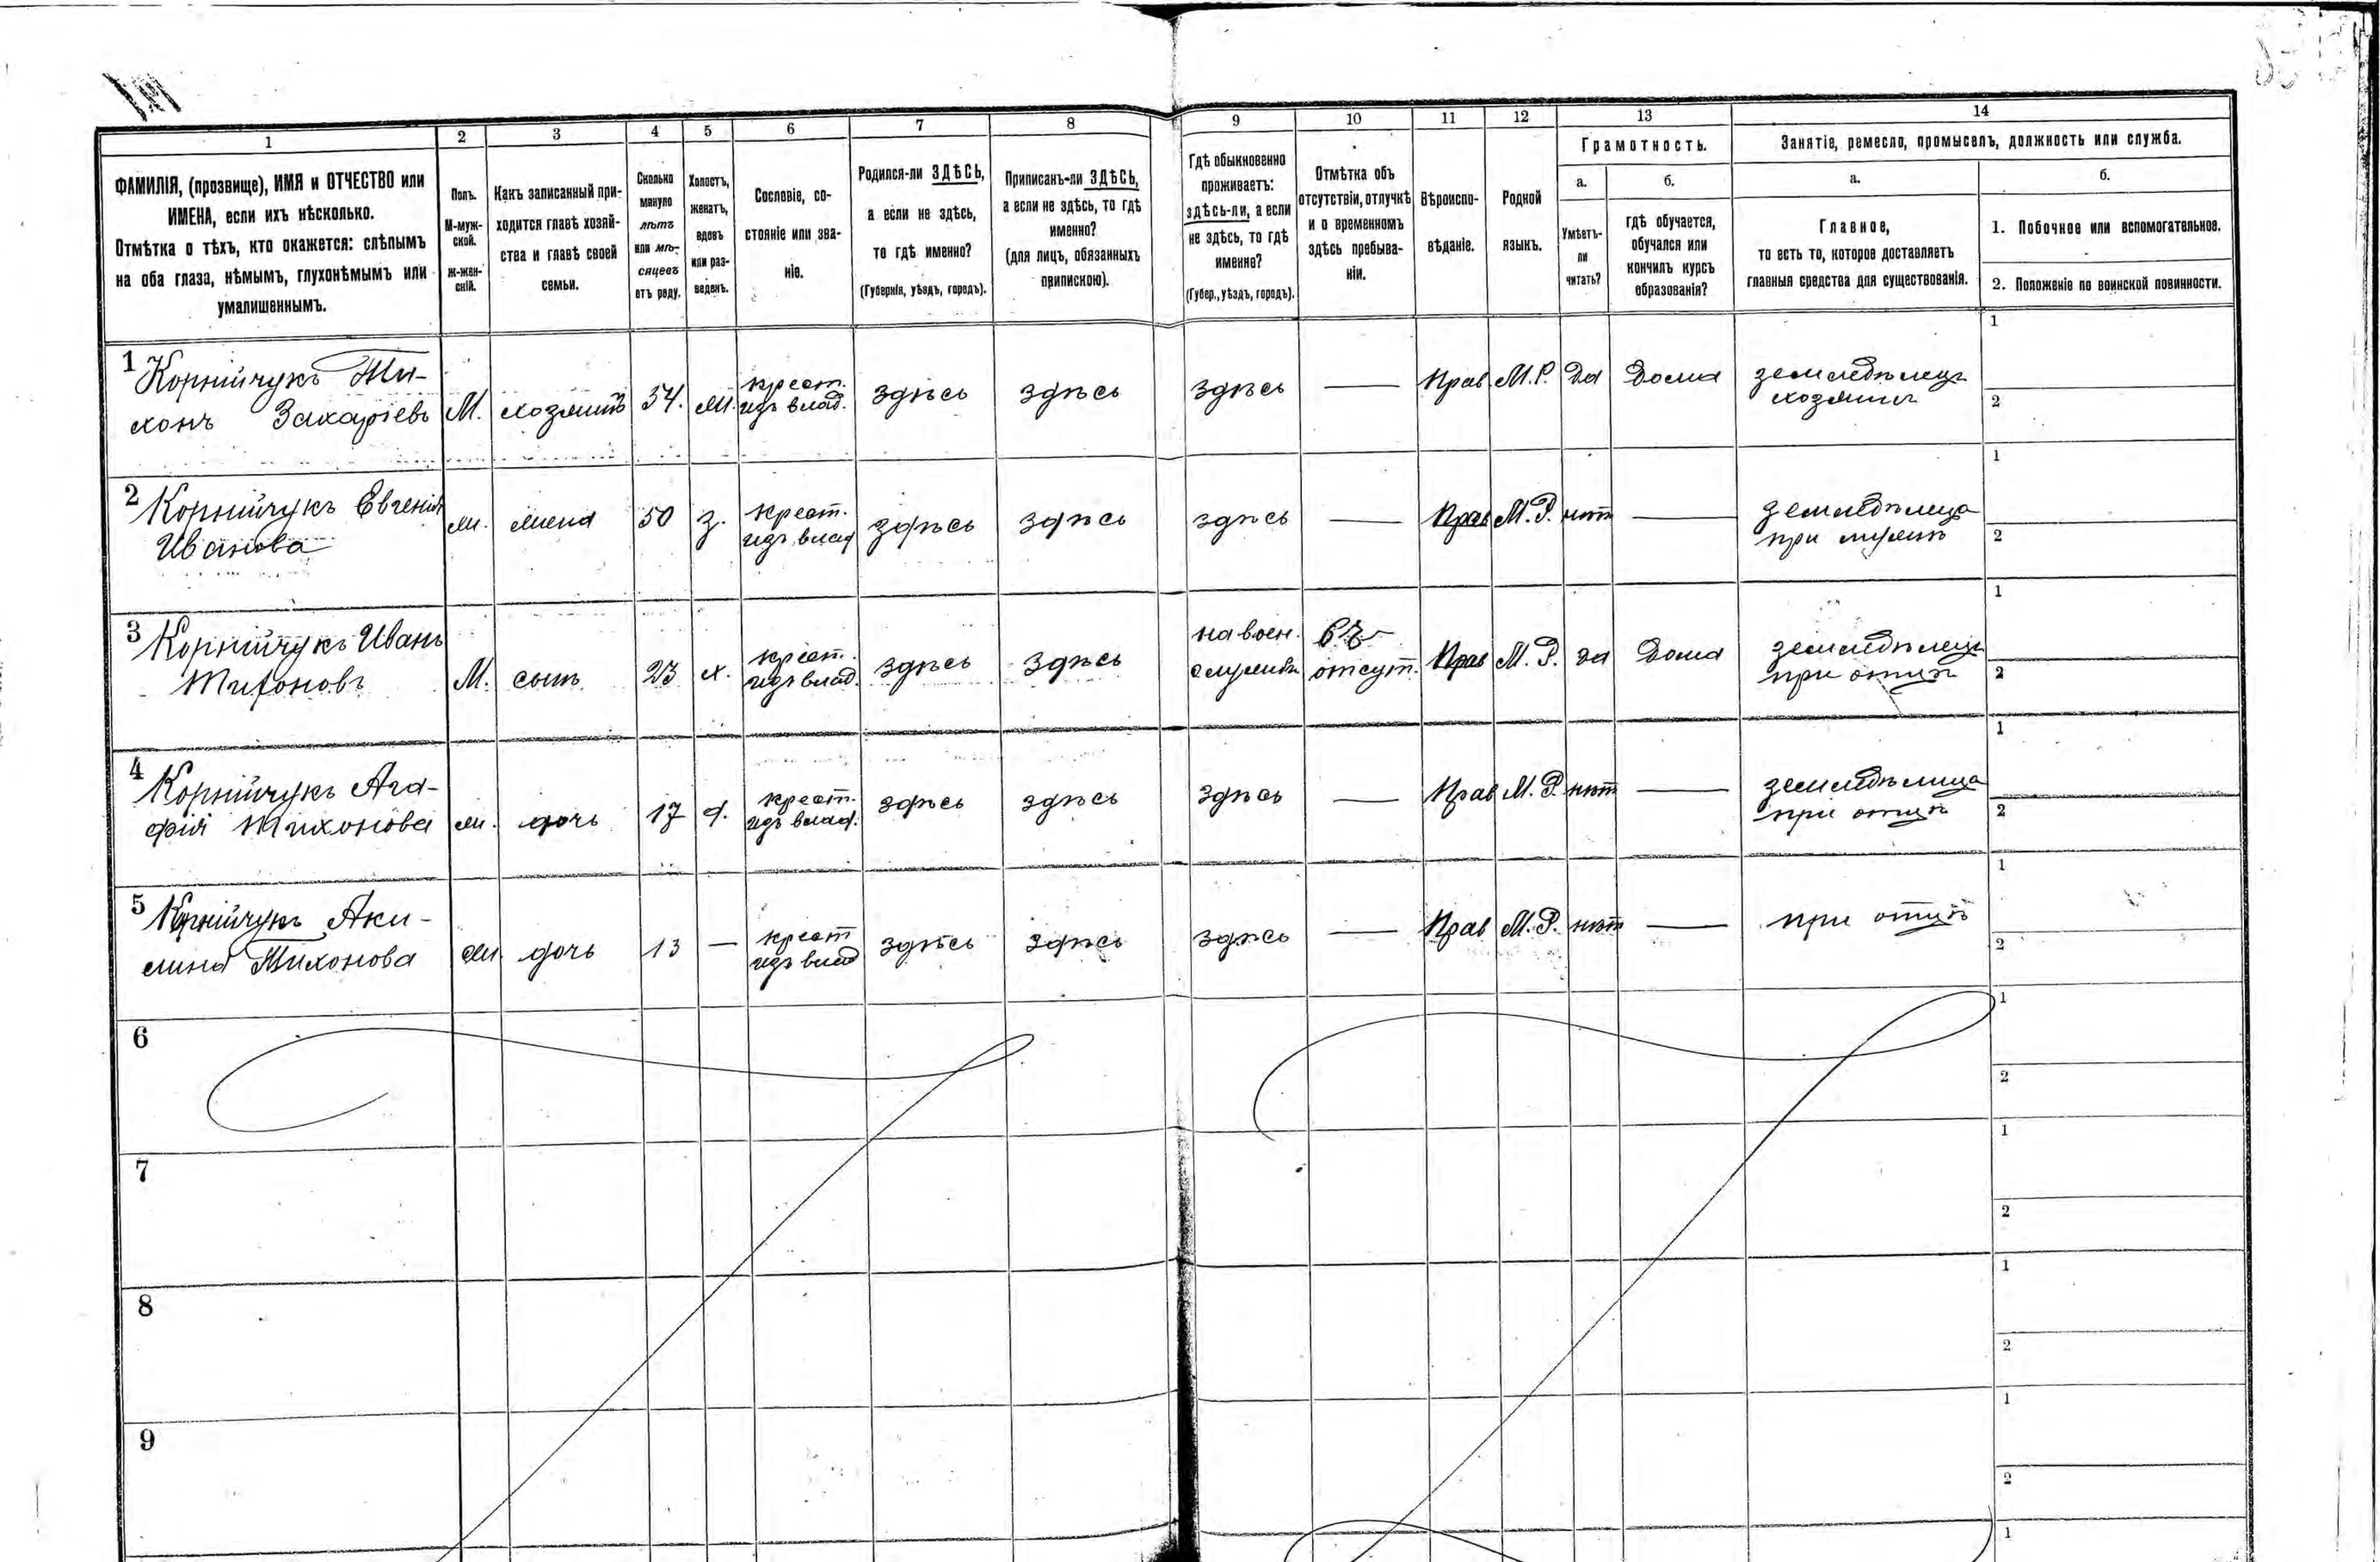 1
2
3
4
5
6
7
8
9
10
11
12
13
14
ФАМИЛІЯ, (прозвище), ИМЯ и ОТЧЕСТВО или
ИМЕНА, если ихъ нѣсколько.
Отмѣтка о тѣхъ, кто окажется: слѣпымъ
на оба глаза, нѣмымъ, глухонѣмымъ или
умалишеннымъ.
Полъ.
М-муж-
ской.
ж-жен-
скій.
Какъ записанный при-
ходится главѣ хозяй-
ства и главѣ своей
семьи.
Сколько
минуло
лѣтъ
или мѣ-
сяцевъ
отъ роду.
Холостъ,
женатъ,
вдовъ
или раз-
веденъ.
Сословіе, со-
стояніе или зва-
ніе.
Родился-ли ЗДѢСЬ,
а если не здѣсь,
то гдѣ именно?
(Губернія, уѣздъ, городъ).
Приписанъ-ли ЗДѢСЬ,
а если не здѣсь, то гдѣ
именно?
(для лицъ, обязанныхъ
припискою).
Гдѣ обыкновенно
проживаетъ:
здѣсь-ли, а если
не здѣсь, то гдѣ
именно?
(Губер., уѣздъ, городъ).
Отмѣтка объ
отсутствіи, отлучкѣ
и о временномъ
здѣсь пребыва-
ніи.
Вѣроиспо-
вѣданіе.
Родной
языкъ.
Грамотность.
а.
б.
Умѣетъ-
ли
читать?
гдѣ обучается,
обучался или
кончилъ курсъ
образованія?
Занятіе, ремесло, промыселъ, должность или служба.
а.
б.
Главное,
то есть то, которое доставляетъ
главныя средства для существованія.
1. Побочное или вспомогательное.
2. Положеніе по воинской повинности.
1 Корнійчукъ Ти-
хонъ Захаріевъ
М.
хозяинъ
54.
ж.
крест.
изъ влад.
здѣсь
здѣсь
здѣсь
—
Прав
М.Р.
да
Дома
земледѣлецъ
хозяинъ
1
2
2 Корнійчукъ Евгенія
Иванова
ж.
жена
50
з.
крест.
изъ влад
здѣсь
здѣсь
здѣсь
—
Прав
М.Р.
нѣт
—
земледѣлица
при мужѣ
1
2
3 Корнійчукъ Иванъ
Тихоновъ
М.
сынъ
23
х.
крест.
изъ влад.
здѣсь
здѣсь
на воен.
службѣ
отсут.
Прав
М.Р.
да
Дома
земледѣлецъ
при отцѣ
1
2
4 Корнійчукъ Ага-
фія Тихонова
ж.
дочь
17
д.
крест.
изъ влад.
здѣсь
здѣсь
здѣсь
—
Прав
М.Р.
нѣт
—
земледѣлица
при отцѣ
1
2
5 Корнійчукъ Аки-
лина Тихонова
ж.
дочь
13
—
крест
изъ влад
здѣсь
здѣсь
здѣсь
—
Прав
М.Р.
нѣт
—
при отцѣ
1
2
6
1
2
7
1
2
8
1
2
9
1
2
1